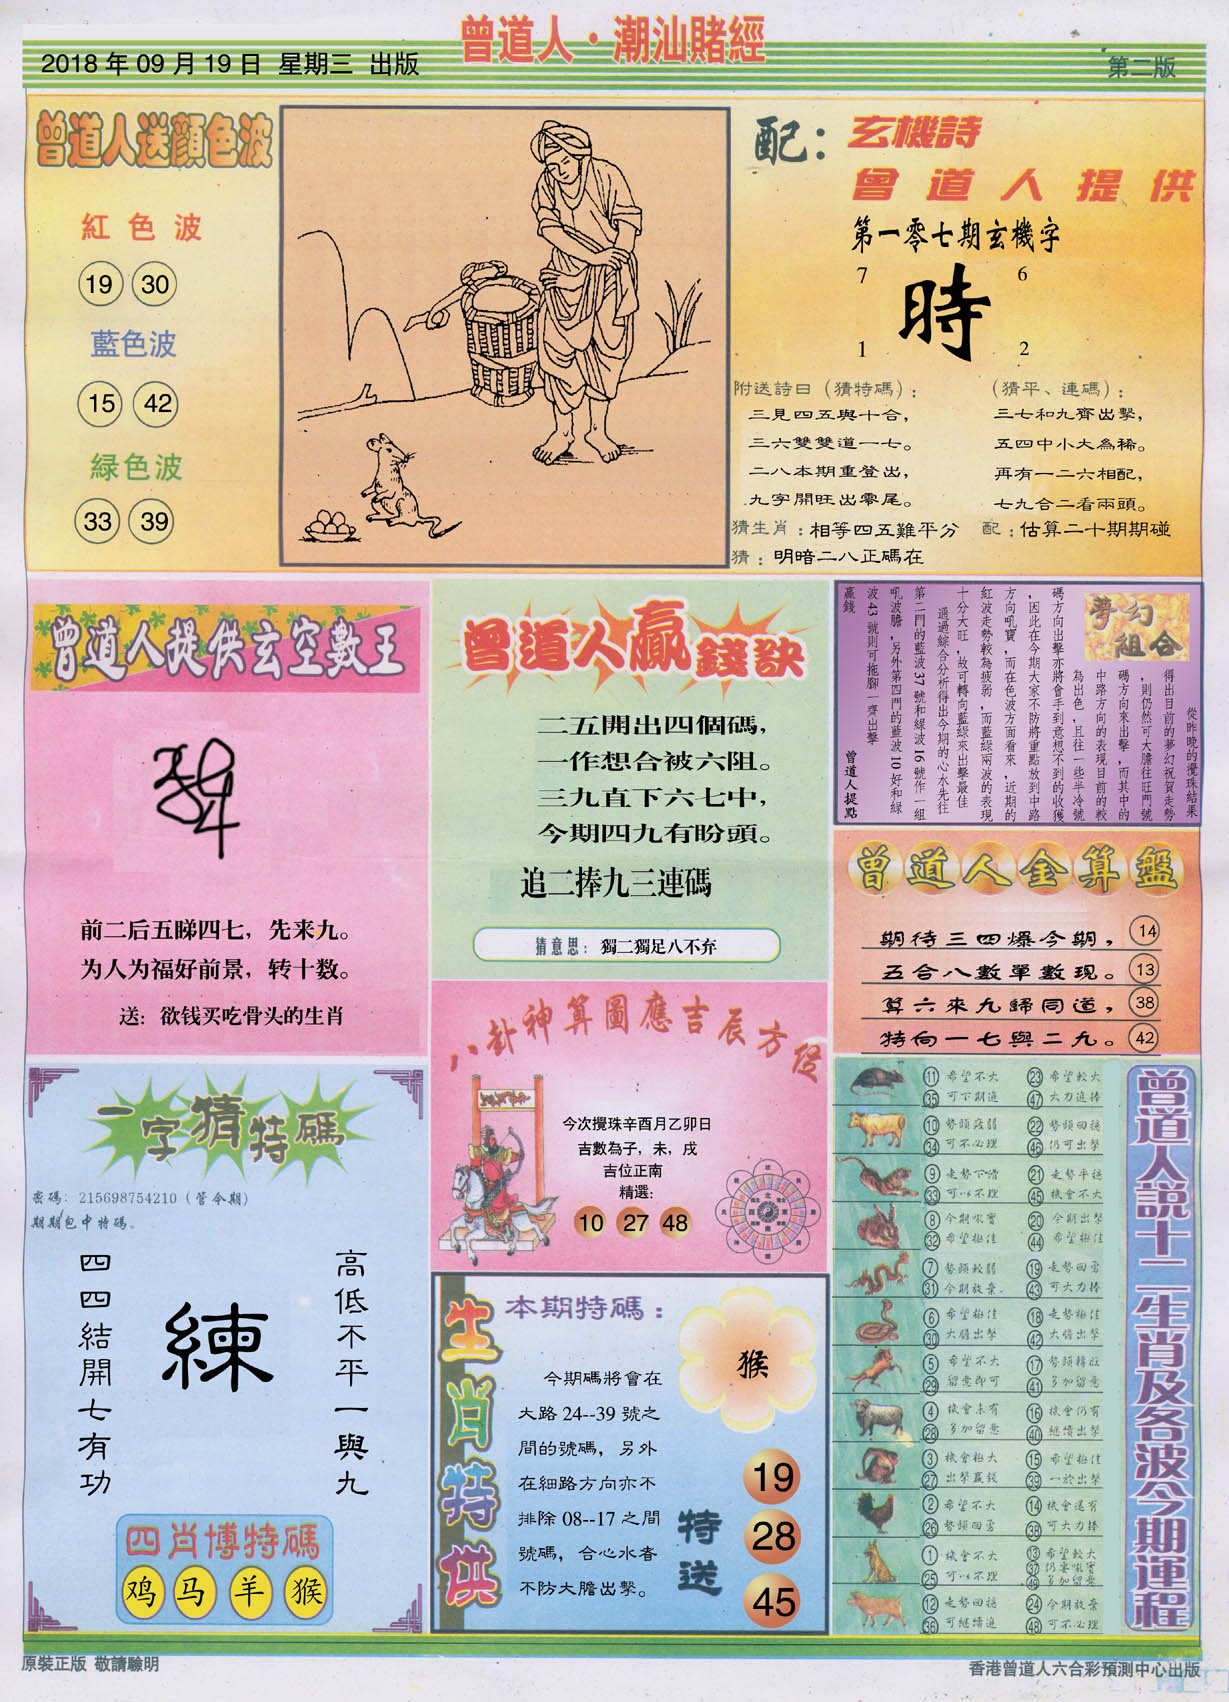 曾道人·潮汕賭經
2018 年 09 月 19 日 星期三 出版
第二版
曾道人送顏色波
紅色波
19 30
藍色波
15 42
緑色波
33 39
配：玄機詩
曾道人提供
第一零七期玄機字
7 6
時
1 2
附送詩曰（猜特碼）：
三見四五與十合，
三六雙雙道一七。
二八本期重登出，
九字開旺出零尾。
（猜平、連碼）：
三七和九齊出擊，
五四中小大為稀。
再有一二六相配，
七九合二看兩頭。
猜生肖：相等四五難平分
配：估算二十期期碰
猜：明暗二八正碼在
曾道人提供玄空數王
前二后五睇四七，先来九。
为人为福好前景，转十数。
送：欲钱买吃骨头的生肖
曾道人贏錢訣
二五開出四個碼，
一作想合被六阻。
三九直下六七中，
今期四九有盼頭。
追二捧九三連碼
猜意思：獨二獨足八不弃
夢幻組合
從昨晚的攪珠結果
得出目前的夢幻祝賀走勢
，則仍然可大膽往旺門號
碼方向來出擊，而其中的
中路方向的表現目前的較
為出色，且往一些半冷號
碼方向出擊亦將會手到意想不到的收獲
，因此在今期大家不防將重點放到中路
方向吼寶，而在色波方面看來，近期的
紅波走勢較為疲弱，而藍綠兩波的表現
十分大旺，故可轉向藍綠來出擊最佳
通過綜合分析得出今期的心水先往
第二門的藍波 37 號和綠波 16 號作一組
吼波膽，另外第四門的藍波 10 好和綠
波 43 號則可拖腳一齊出擊
贏錢
曾道人提點
曾道人金算盤
期待三四爆今期， 14
五合八數單數現。 13
算六來九歸同道， 38
特向一七與二九。 42
八卦神算圖應吉辰方位
今次攪珠辛酉月乙卯日
吉數為子，未，戌
吉位正南
精選：
10 27 48
一字猜特碼
密碼：215698754210（管今期）
期期包中特碼。
高低不平一與九
練
四四結開七有功
四肖博特碼
鸡 马 羊 猴
生肖特供
本期特碼：
猴
今期碼將會在
大路 24--39 號之
間的號碼，另外
在細路方向亦不
排除 08--17 之間
號碼，合心水者
不防大膽出擊。
特送
19
28
45
曾道人說十二生肖及各波今期運程
11 希望不大 23 希望較大
35 可下期追 47 大力追捧
10 勢頭疲弱 22 勢頭回穩
34 可不必理 46 仍可出擊
9 走勢下滑 21 走勢平穩
33 可以不理 45 機會不大
8 今期吼寶 20 今期出擊
32 希望極佳 44 希望極佳
7 勢頭較弱 19 走勢回勇
31 今期放棄 43 可大力捧
6 希望極佳 18 走勢極佳
30 大膽出擊 42 大膽出擊
5 希望不大 17 勢頭轉旺
29 留意即可 41 多加留意
4 機會未有 16 機會仍有
28 多加留意 40 繼續出擊
3 機會極大 15 希望極佳
27 出擊贏錢 39 一於出擊
2 希望不大 14 機會還有
26 勢頭回勇 38 可大力捧
1 機會不大 13 希望較大
37 仍要吼寶
25 可以不理 49 多加留意
12 走勢回穩 24 今期放棄
36 可繼續追 48 可不必理
原裝正版 敬請驗明
香港曾道人六合彩預測中心出版